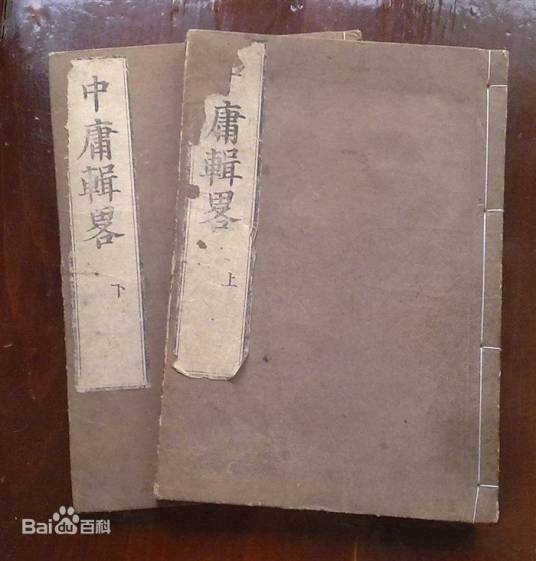 中庸輯畧
下
庸輯畧
上
Bai du 百科